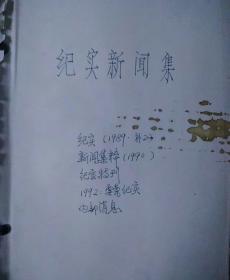 纪实新闻集
纪实（1989.补2）
新闻集粹（1990）
纪实特刊
1992.纪实
内部消息